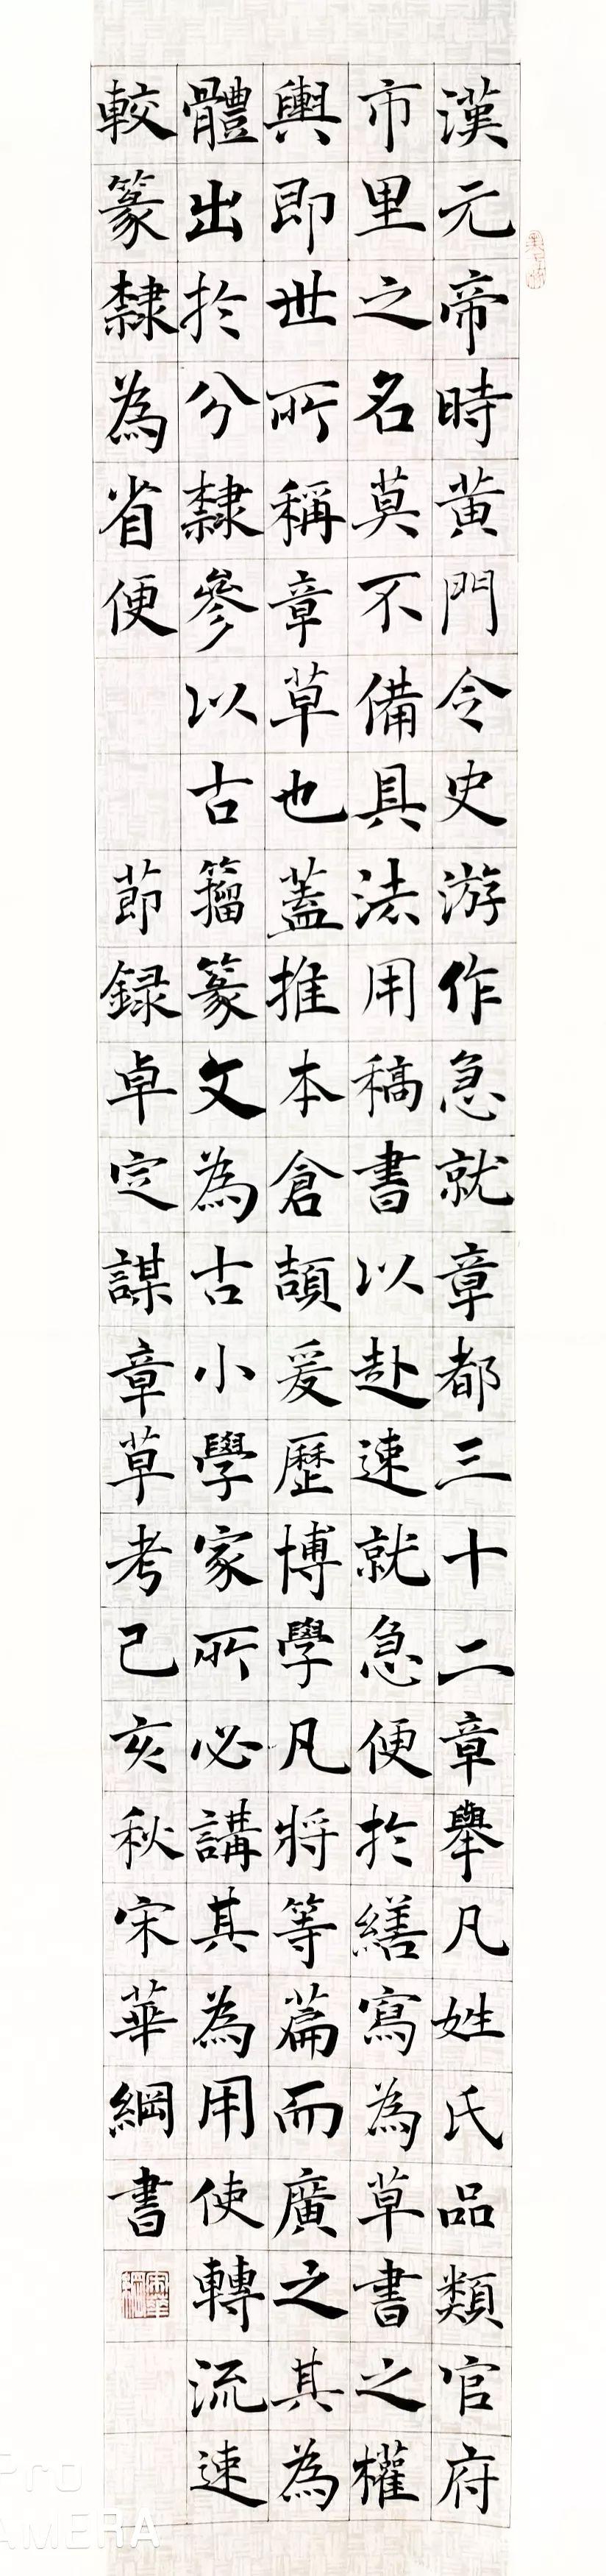 漢元帝時黃門令史游作急就章都三十二章舉凡姓氏品類官府
市里之名莫不備具法用稿書以赴速就急便於繕寫為草書之權
輿即世所稱章草也蓋推本倉頡爰歷博學凡將等篇而廣之其為
體出於分隸參以古籀篆文為古小學家所必講其為用使轉流速
較篆隸為省便
節録卓定謀章草考己亥秋宋華綱書
Pro
AMERA